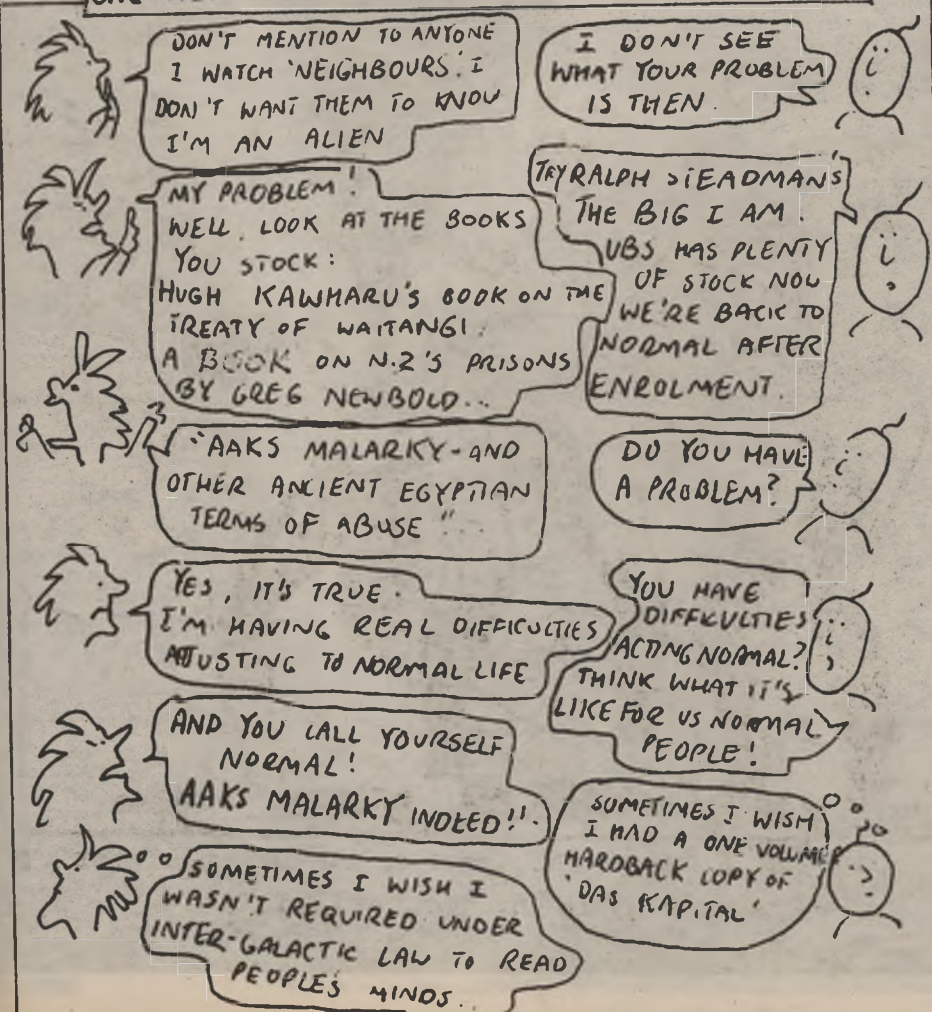 DON'T MENTION TO ANYONE
I WATCH 'NEIGHBOURS'. I
DON'T WANT THEM TO KNOW
I'M AN ALIEN
I DON'T SEE
WHAT YOUR PROBLEM
IS THEN.
MY PROBLEM!
WELL, LOOK AT THE BOOKS
YOU STOCK:
HUGH KAWHARU'S BOOK ON THE
TREATY OF WAITANGI.
A BOOK ON N.Z'S PRISONS
BY GREG NEWBOLD...
TRY RALPH STEADMAN'S
THE BIG I AM.
UBS HAS PLENTY
OF STOCK NOW
WE'RE BACK TO
NORMAL AFTER
ENROLMENT.
"AAKS MALARKY - AND
OTHER ANCIENT EGYPTIAN
TERMS OF ABUSE"
DO YOU HAVE
A PROBLEM?
YES, IT'S TRUE.
I'M HAVING REAL DIFFICULTIES
ADJUSTING TO NORMAL LIFE
YOU HAVE
DIFFICULTIES
ACTING NORMAL?
THINK WHAT IT'S
LIKE FOR US NORMAL
PEOPLE!
AND YOU CALL YOURSELF
NORMAL!
AAKS MALARKY INDEED!!
SOMETIMES I WISH
I HAD A ONE VOLUME
HARDBACK COPY OF
'DAS KAPITAL'
SOMETIMES I WISH I
WASN'T REQUIRED UNDER
INTER-GALACTIC LAW TO READ
PEOPLE'S MINDS..